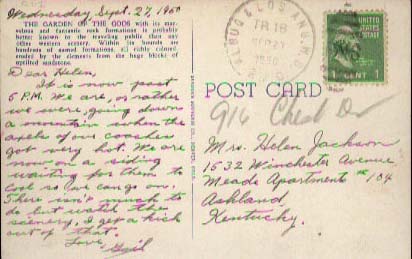 Wednesday Sept. 27, 1950
THE GARDEN OF THE GODS with its marvelous and fantastic rock formations is probably
better known to the traveling public than any
other western scenery. Within its bounds are
hundreds of named formations, all richly colored,
eroded by the elements from the huge blocks of
uptilted sandstone.
Dear Helen,
It is now past
6 P.M. We are, or rather
we were going down
a mountain when the
axels of our coaches
got very hot. We are
now on a siding
waiting for them to
cool so we can go on.
There isn't much to
do but watch the
scenery. I get a kick
out of that.
Love,
ALBUQ & LOS ANG
TR 18
1950
1 CENT 1
POST CARD
916 Chest Dr
Mrs. Helen Jackson
1532 Winchester Avenue
Meade Apartments # 104
Ashland,
Kentucky.